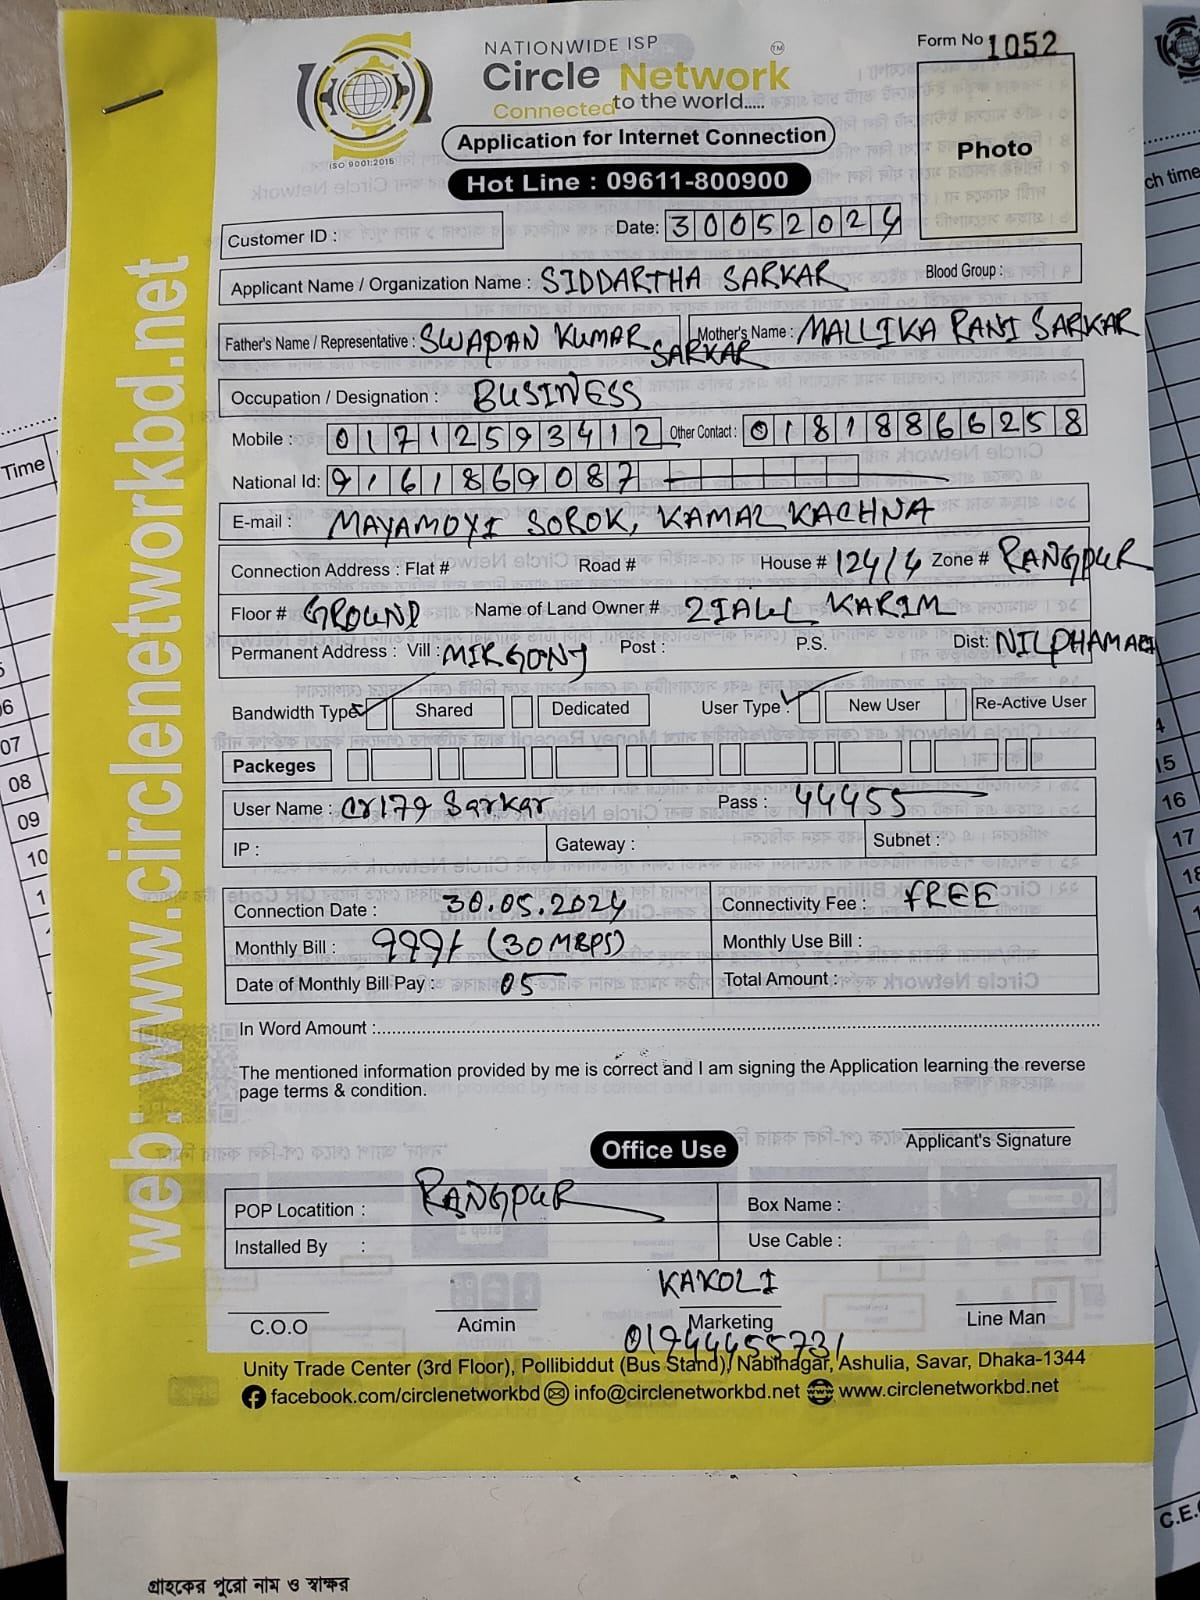 NATIONWIDE ISP
Circle Network TM
Connected to the world.....
ISO 9001:2015
Form No 1052
Application for Internet Connection
Photo
Hot Line : 09611-800900
Customer ID :
Date: 30052024
Applicant Name / Organization Name : SIDDARTHA SARKAR Blood Group :
Father's Name / Representative : SWAPAN KUMAR SARKAR Mother's Name : MALLIKA RANI SARKAR
Occupation / Designation : BUSINESS
Mobile : 01712593412 Other Contact : 01818866258
National Id: 9161869087
E-mail : MAYAMOYI SOROK, KAMAL KACHNA
Connection Address : Flat # Road # House # 124/4 Zone # RANGPUR
Floor # GROUND Name of Land Owner # ZIAUL KARIM
Permanent Address : Vill : MIRGONJ Post : P.S. Dist: NILPHAMARI
Bandwidth Type Shared Dedicated User Type : New User Re-Active User
Packeges
User Name : cr179 Sarkar Pass : 44455
IP : Gateway : Subnet :
Connection Date : 30.05.2024 Connectivity Fee : FREE
Monthly Bill : 999/- (30 MBPS) Monthly Use Bill :
Date of Monthly Bill Pay : 05 Total Amount :
In Word Amount :
The mentioned information provided by me is correct and I am signing the Application learning the reverse
page terms & condition.
Applicant's Signature
Office Use
POP Locatition : RANGPUR Box Name :
Installed By : Use Cable :
KAKOLI
C.O.O Admin Marketing Line Man
01944455731
Unity Trade Center (3rd Floor), Pollibiddut (Bus Stand), Nabinagar, Ashulia, Savar, Dhaka-1344
facebook.com/circlenetworkbd info@circlenetworkbd.net www.circlenetworkbd.net
web: www.circlenetworkbd.net
গ্রাহকের পুরো নাম ও স্বাক্ষর
Time
06
07
08
09
10
ch time
15
16
17
18